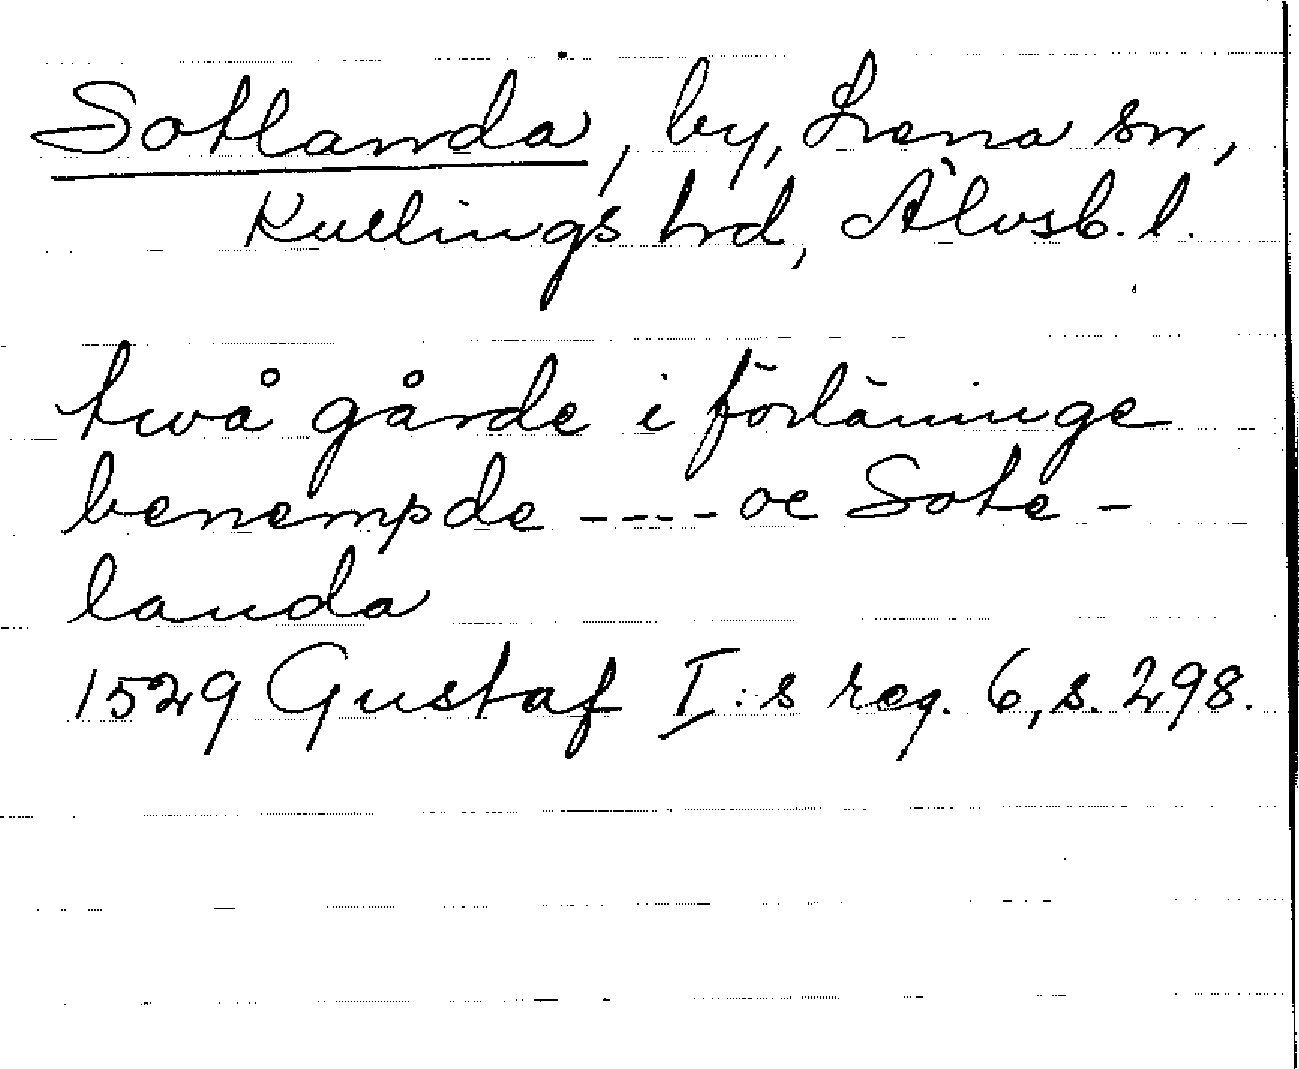 Sotlanda, by, Lena sn,
Kullings hrd, Älvsb. l.
twå gårde i förläninge
benempde ---- oc Sote-
landa
1529 Gustaf I:s reg. 6, s. 298.